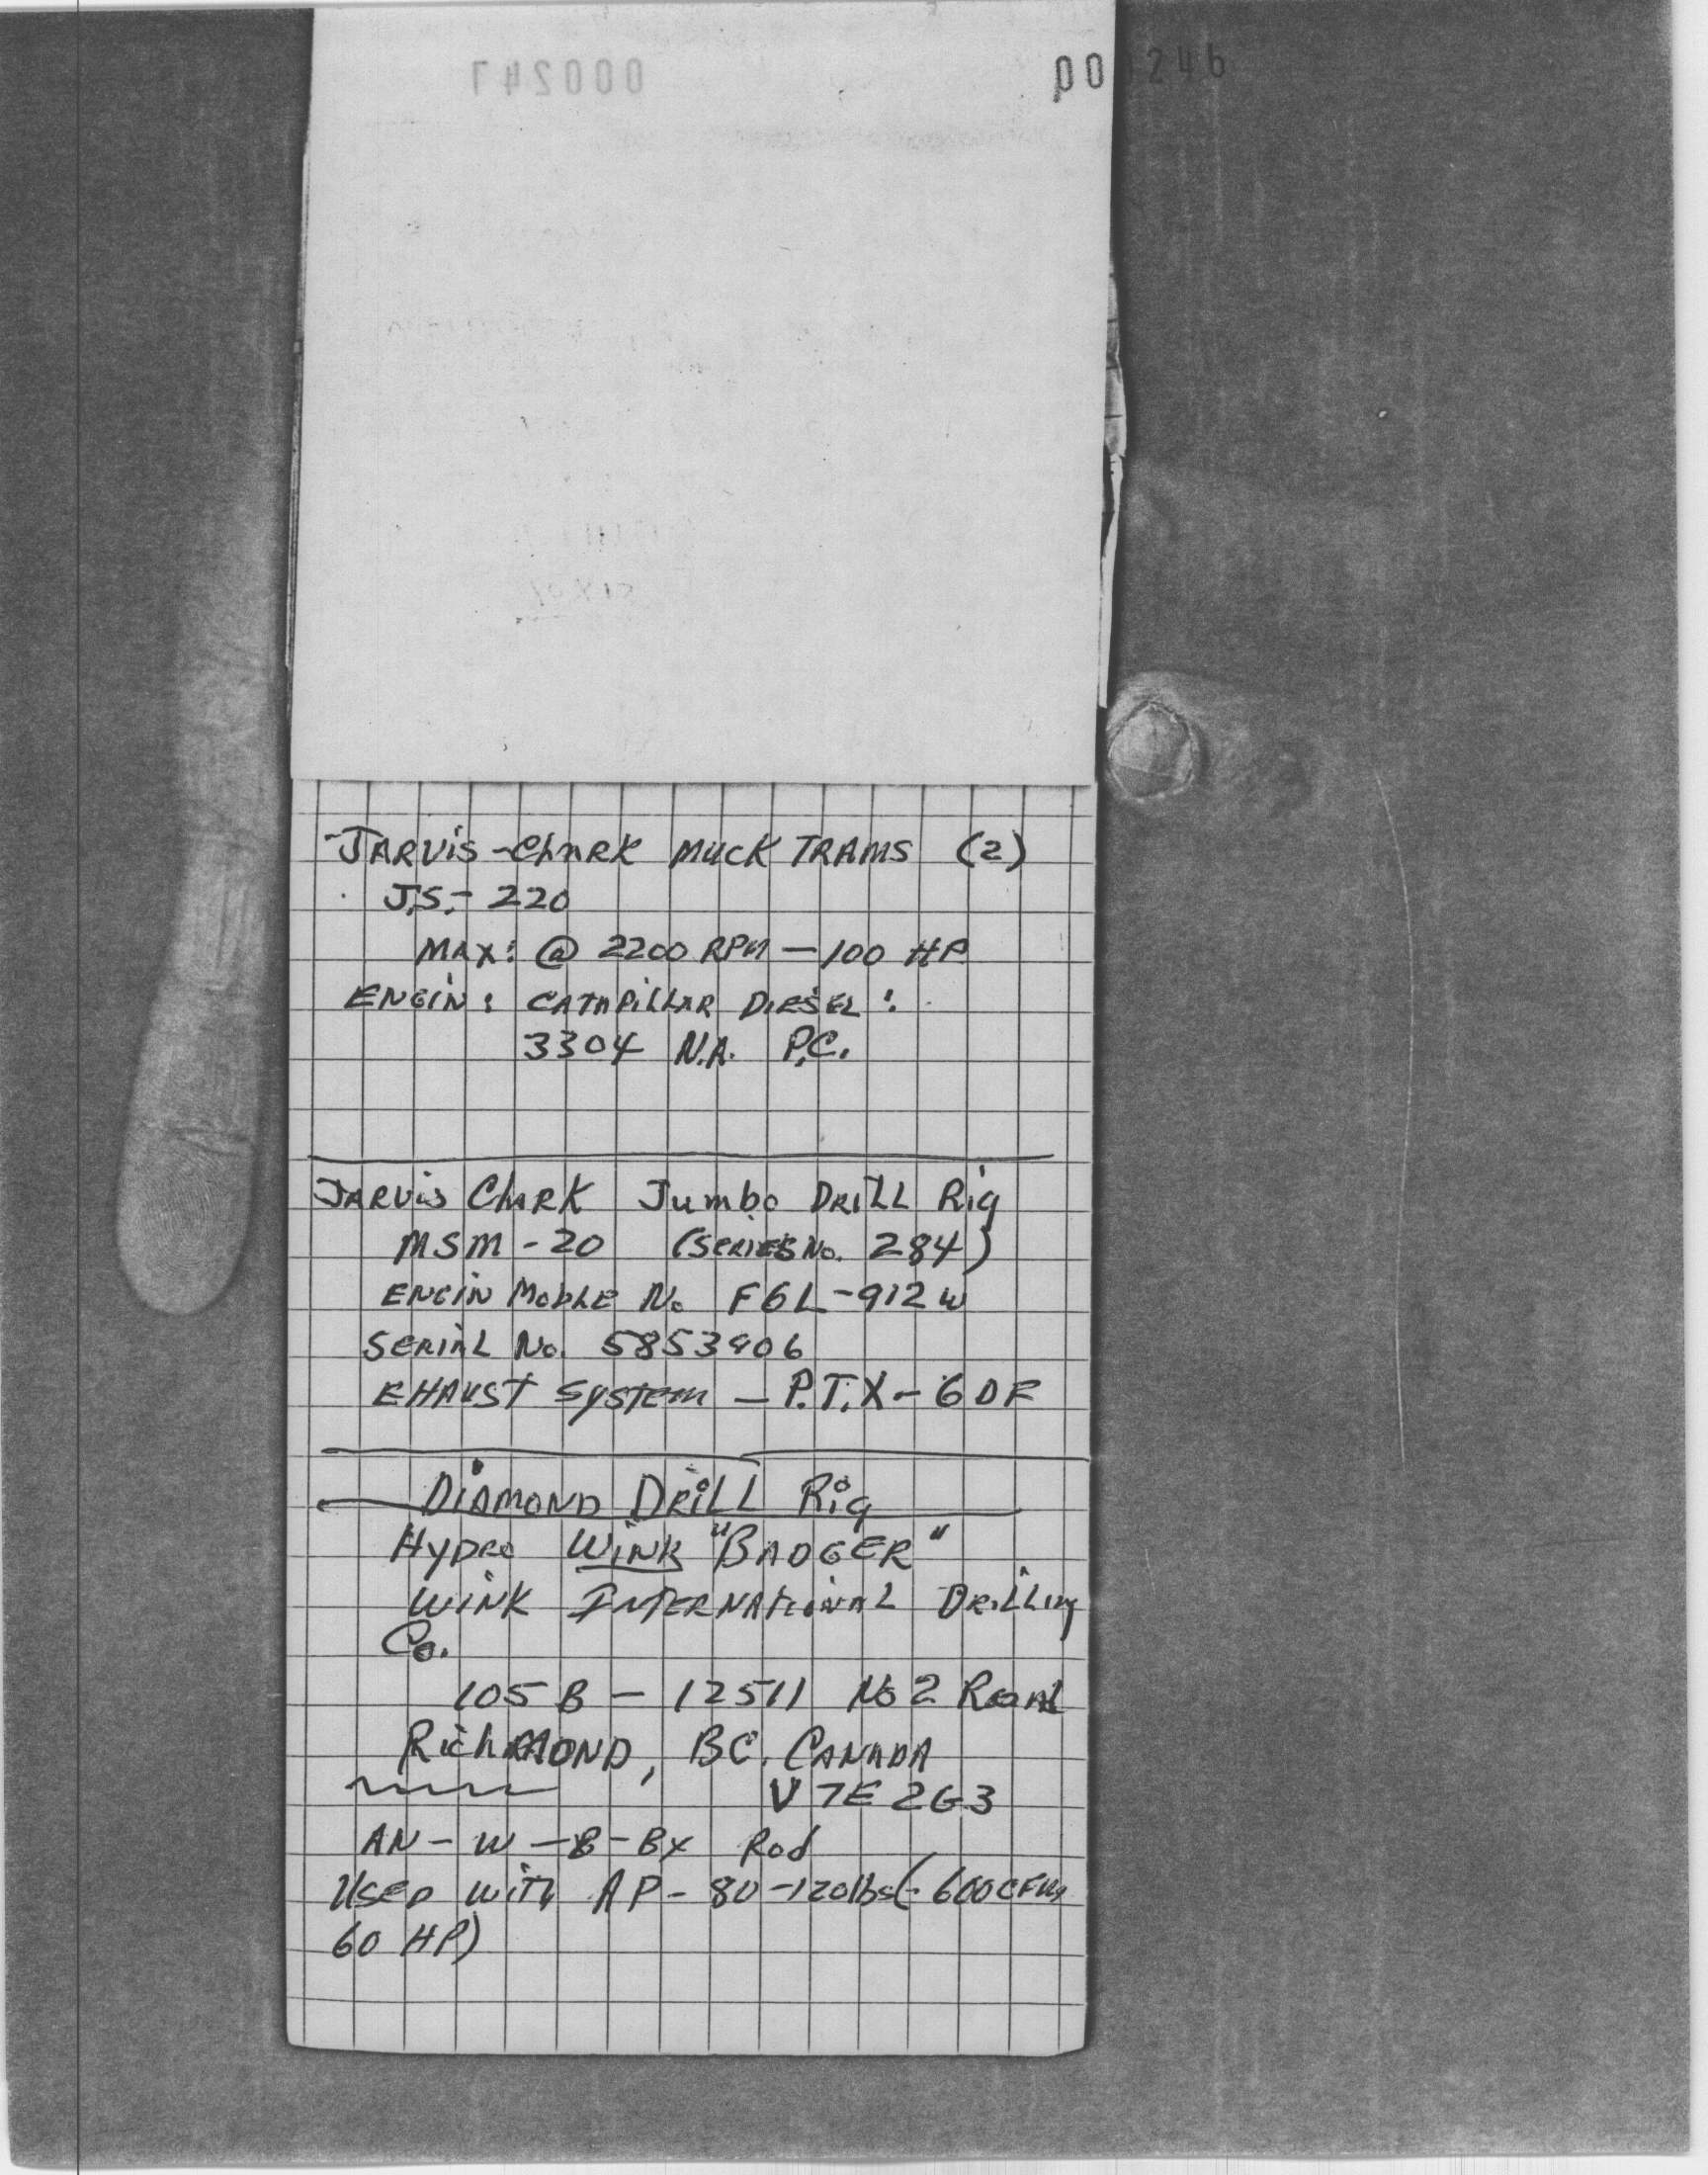 000247
000246
JARVIS-CLARK MUCK TRAMS (2)
J.S.- 220
MAX: @ 2200 RPM - 100 HP
ENGIN: CATAPILLAR DIESEL:
3304 N.A. P.C.
JARVIS CLARK Jumbo DRILL Rig
MSM-20 (SERIES No. 284)
ENGIN MODLE No F6L-912W
SERIAL No. 5853906
EHAUST SYSTEM - P.T.X-6DF
DIAMOND DRILL Rig
HYDRO WINK "BADGER"
WINK INTERNATIONAL DRILLING
Co.
105 B - 12511 No 2 Road
RichMOND, BC. CANADA
V7E 2G3
AN-W-B-BX Rod
USED WITH AP-80-120lbs(-600CFM,
60 HP)